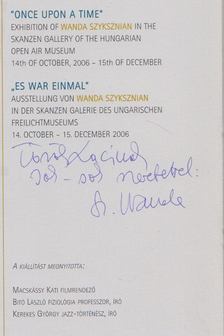 "ONCE UPON A TIME"
EXHIBITION OF WANDA SZYKSZNIAN IN THE
SKANZEN GALLERY OF THE HUNGARIAN
OPEN AIR MUSEUM
14TH OF OCTOBER, 2006 – 15TH OF DECEMBER
„ES WAR EINMAL"
AUSSTELLUNG VON WANDA SZYKSZNIAN
IN DER SKANZEN GALERIE DES UNGARISCHEN
FREILICHTMUSEUMS
14. OCTOBER – 15. DECEMBER 2006
sok - sok szeretettel:
Wanda
A KIÁLLÍTÁST MEGNYITOTTA:
MACSKÁSSY KATI FILMRENDEZŐ
BITÓ LÁSZLÓ FIZIOLÓGIA PROFESSZOR, ÍRÓ
KEREKES GYÖRGY JAZZ-TÖRTÉNÉSZ, ÍRÓ